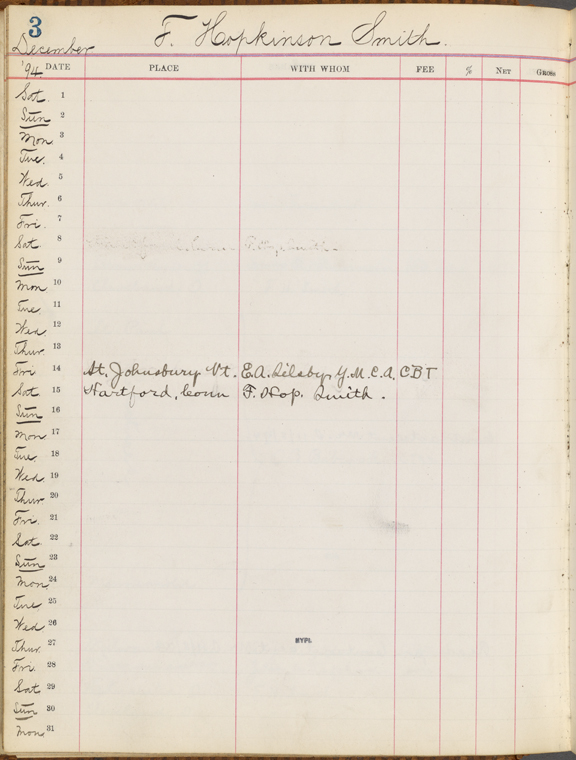 3
F. Hopkinson Smith.
December
'94 DATE PLACE WITH WHOM FEE % NET GROSS
Sat. 1
Sun 2
Mon 3
Tue. 4
Wed. 5
Thur. 6
Fri. 7
Sat. 8
Sun 9
Mon 10
Tue 11
Wed. 12
Thur 13
Fri 14 St. Johnsbury Vt. E.A. Silsby, Y.M.C.A. CBT
Sat 15 Hartford, Conn F. Hop. Smith.
Sun 16
Mon 17
Tue 18
Wed 19
Thur 20
Fri. 21
Sat 22
Sun 23
Mon 24
Tue 25
Wed 26
Thur. 27 NYPL
Fri. 28
Sat 29
Sun 30
Mon 31